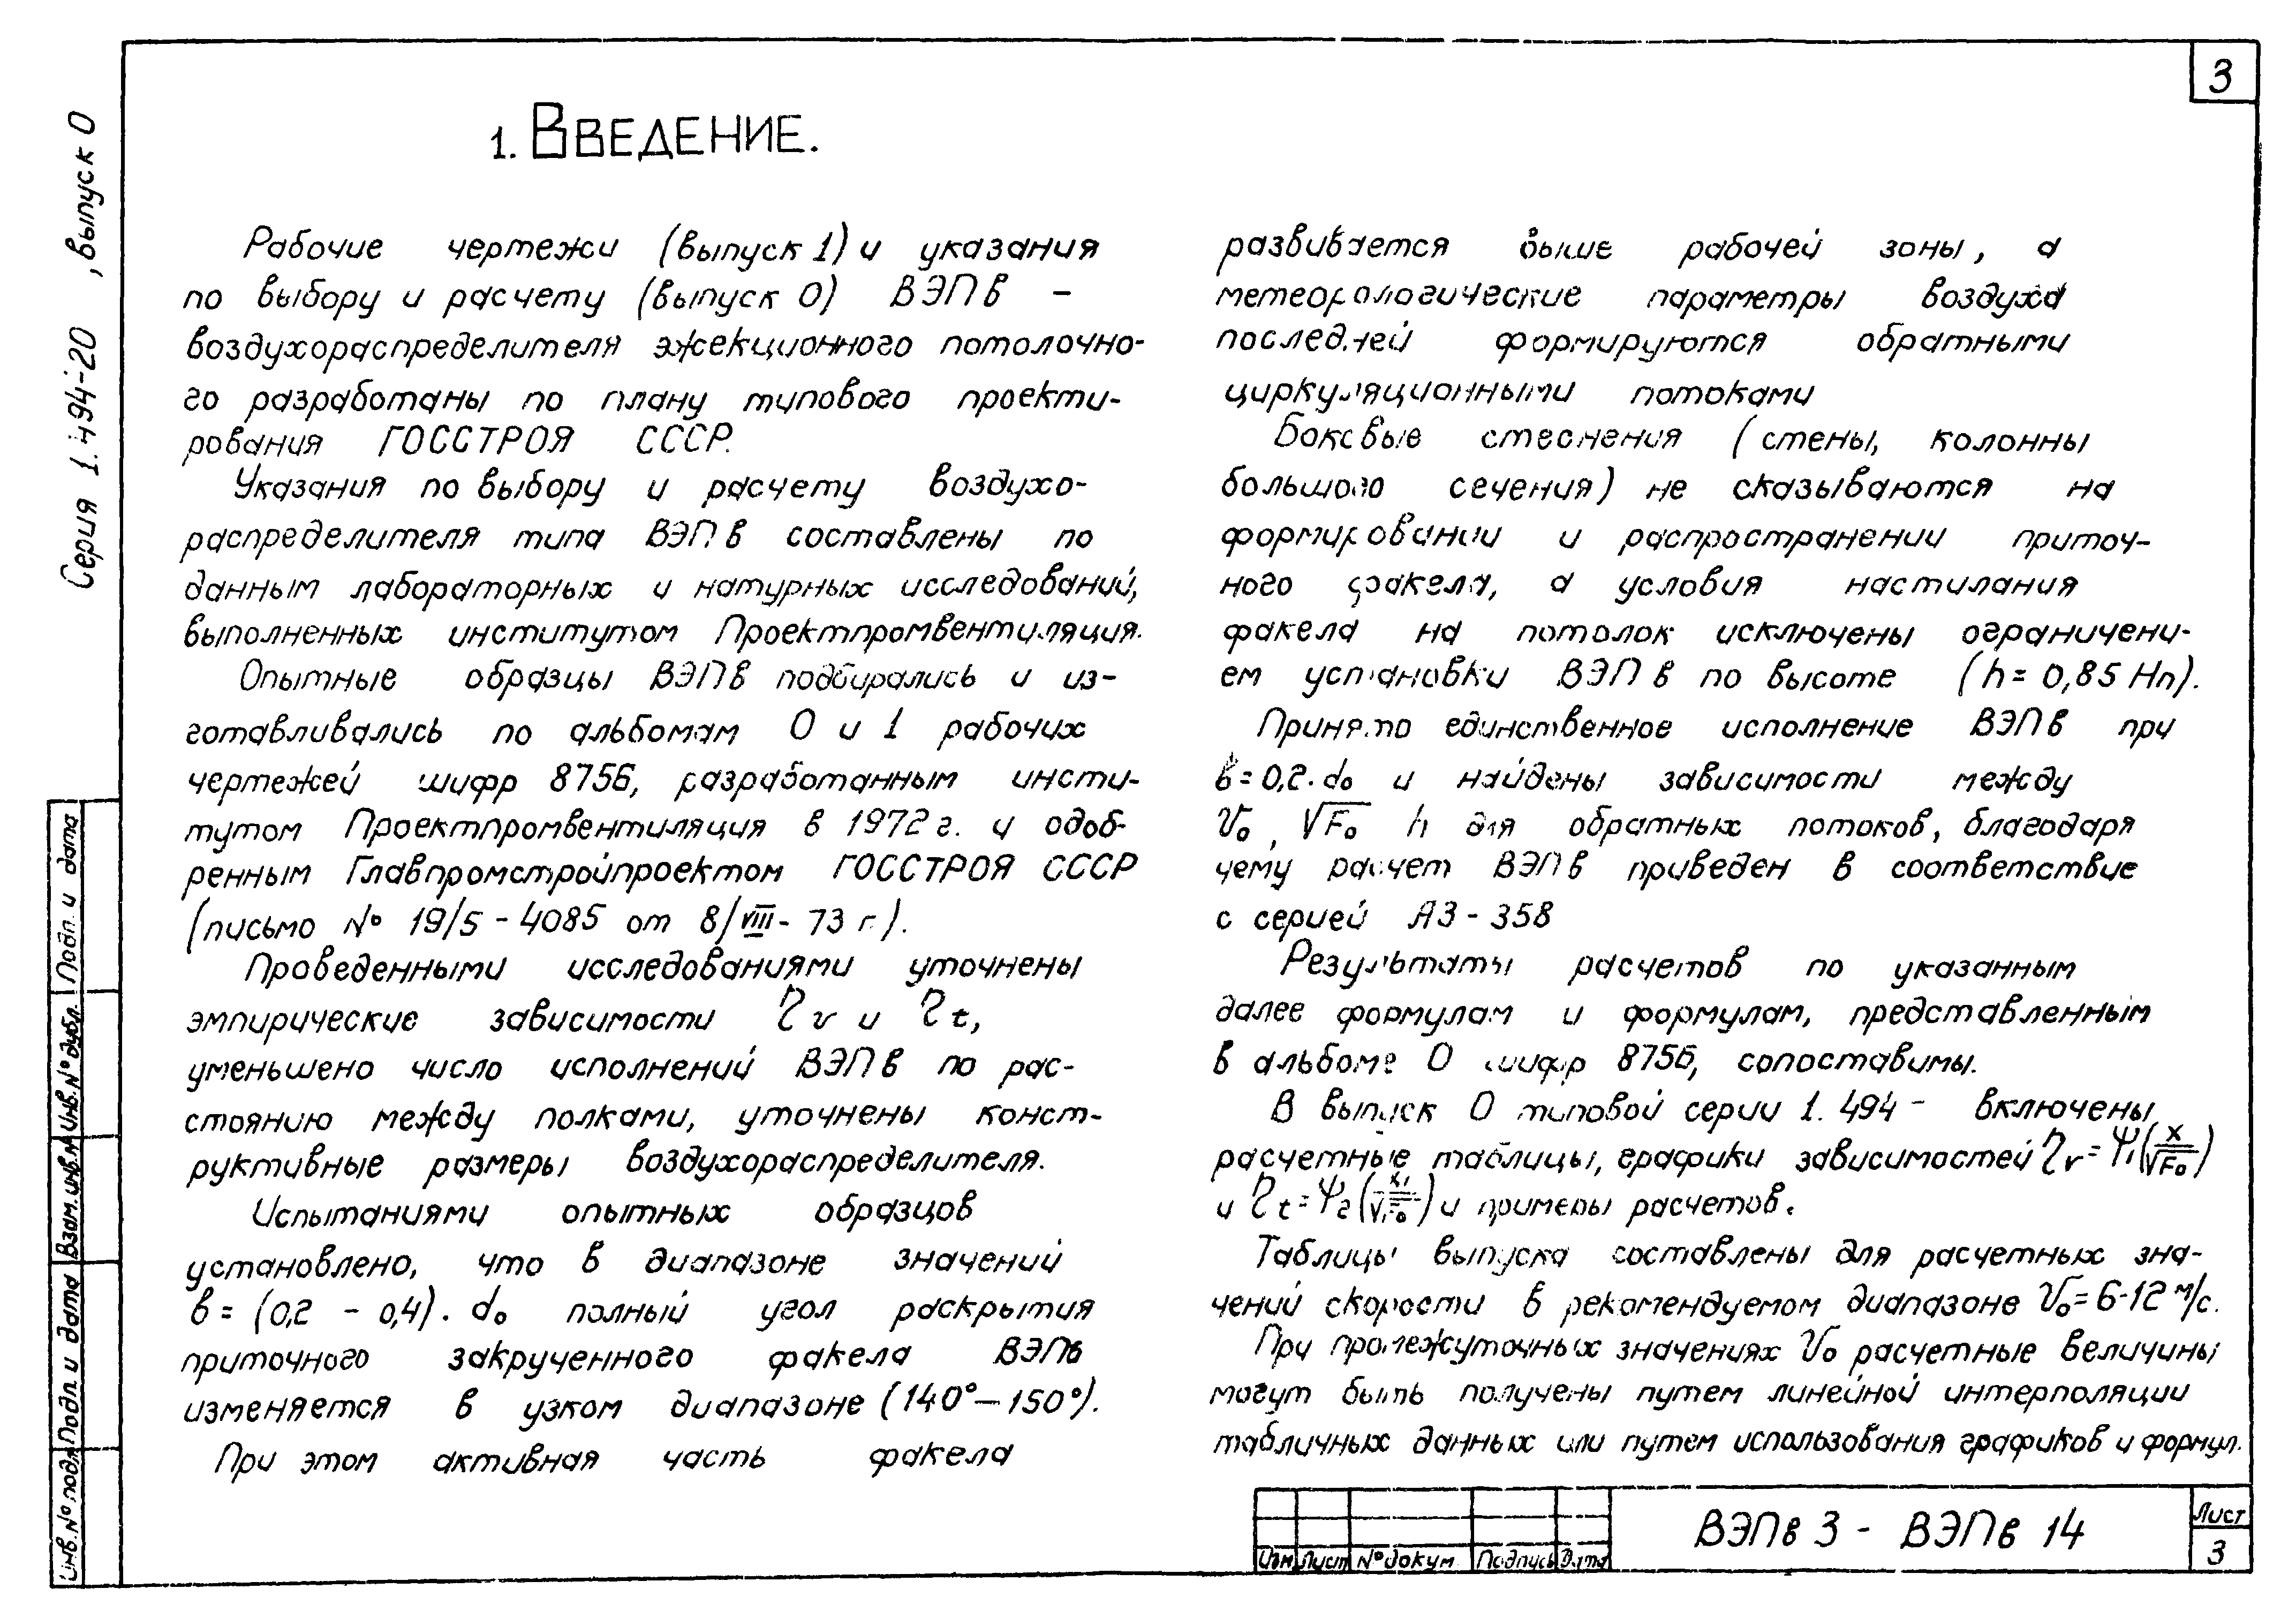 3
1. ВВЕДЕНИЕ.
Серия 1.494-20 , выпуск 0
Рабочие чертежи (выпуск 1) и указания
по выбору и расчету (выпуск 0) ВЭПв –
воздухораспределителя эжекционного потолочно-
го разработаны по плану типового проекти-
рования ГОССТРОЯ СССР.
Указания по выбору и расчету воздухо-
распределителя типа ВЭПв составлены по
данным лабораторных и натурных исследований,
выполненных институтом Проектпромвентиляция.
Опытные образцы ВЭПв подбирались и из-
готавливались по альбомам 0 и 1 рабочих
чертежей шифр 8756, разработанным инсти-
тутом Проектпромвентиляция в 1972 г. и одоб-
ренным Главпромстройпроектом ГОССТРОЯ СССР
(письмо № 19/5 - 4085 от 8/VIII - 73 г.).
Проведенными исследованиями уточнены
эмпирические зависимости η v и η t,
уменьшено число исполнений ВЭПв по рас-
стоянию между полками, уточнены конст-
руктивные размеры воздухораспределителя.
Испытаниями опытных образцов
установлено, что в диапазоне значений
в = (0,2 - 0,4) · d₀ полный угол раскрытия
приточного закрученного факела ВЭПв
изменяется в узком диапазоне (140° – 150°).
При этом активная часть факела
развивается выше рабочей зоны, а
метеорологические параметры воздуха
последней формируются обратными
циркуляционными потоками
Боковые стеснения (стены, колонны
большого сечения) не сказываются на
формировании и распространении приточ-
ного факела, а условия настилания
факела на потолок исключены ограничени-
ем установки ВЭПв по высоте (h = 0,85 Hп).
Принято единственное исполнение ВЭПв при
в = 0,2 · d₀ и найдены зависимости между
V₀, √F₀ h для обратных потоков, благодаря
чему расчет ВЭПв приведен в соответствие
с серией А3 - 358
Результаты расчетов по указанным
далее формулам и формулам, представленным
в альбоме 0 шифр 8756, сопоставимы.
В выпуск 0 типовой серии 1. 494 - включены
расчетные таблицы, графики зависимостей η v = Ψ₁(x/√F₀)
и η t = Ψ₂(x₁/√F₀) и примеры расчетов.
Таблицы выпуска составлены для расчетных зна-
чений скорости в рекомендуемом диапазоне V₀ = 6-12 м/с.
При промежуточных значениях V₀ расчетные величины
могут быть получены путем линейной интерполяции
табличных данных или путем использования графиков и формул.
Подп. и дата
Инв. № дубл.
Взам. инв. №
Подп и дата
Инв. № подл
Изм Лист № докум Подпись Дата
ВЭПв 3 - ВЭПв 14
Лист
3